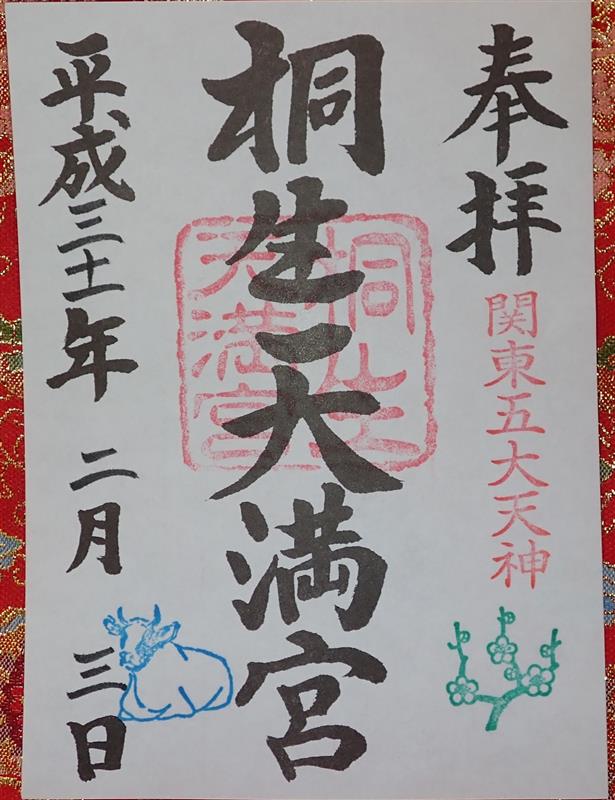 奉拝
関東五大天神
桐生天満宮
桐生
天満宮
平成三十一年 二月 三日